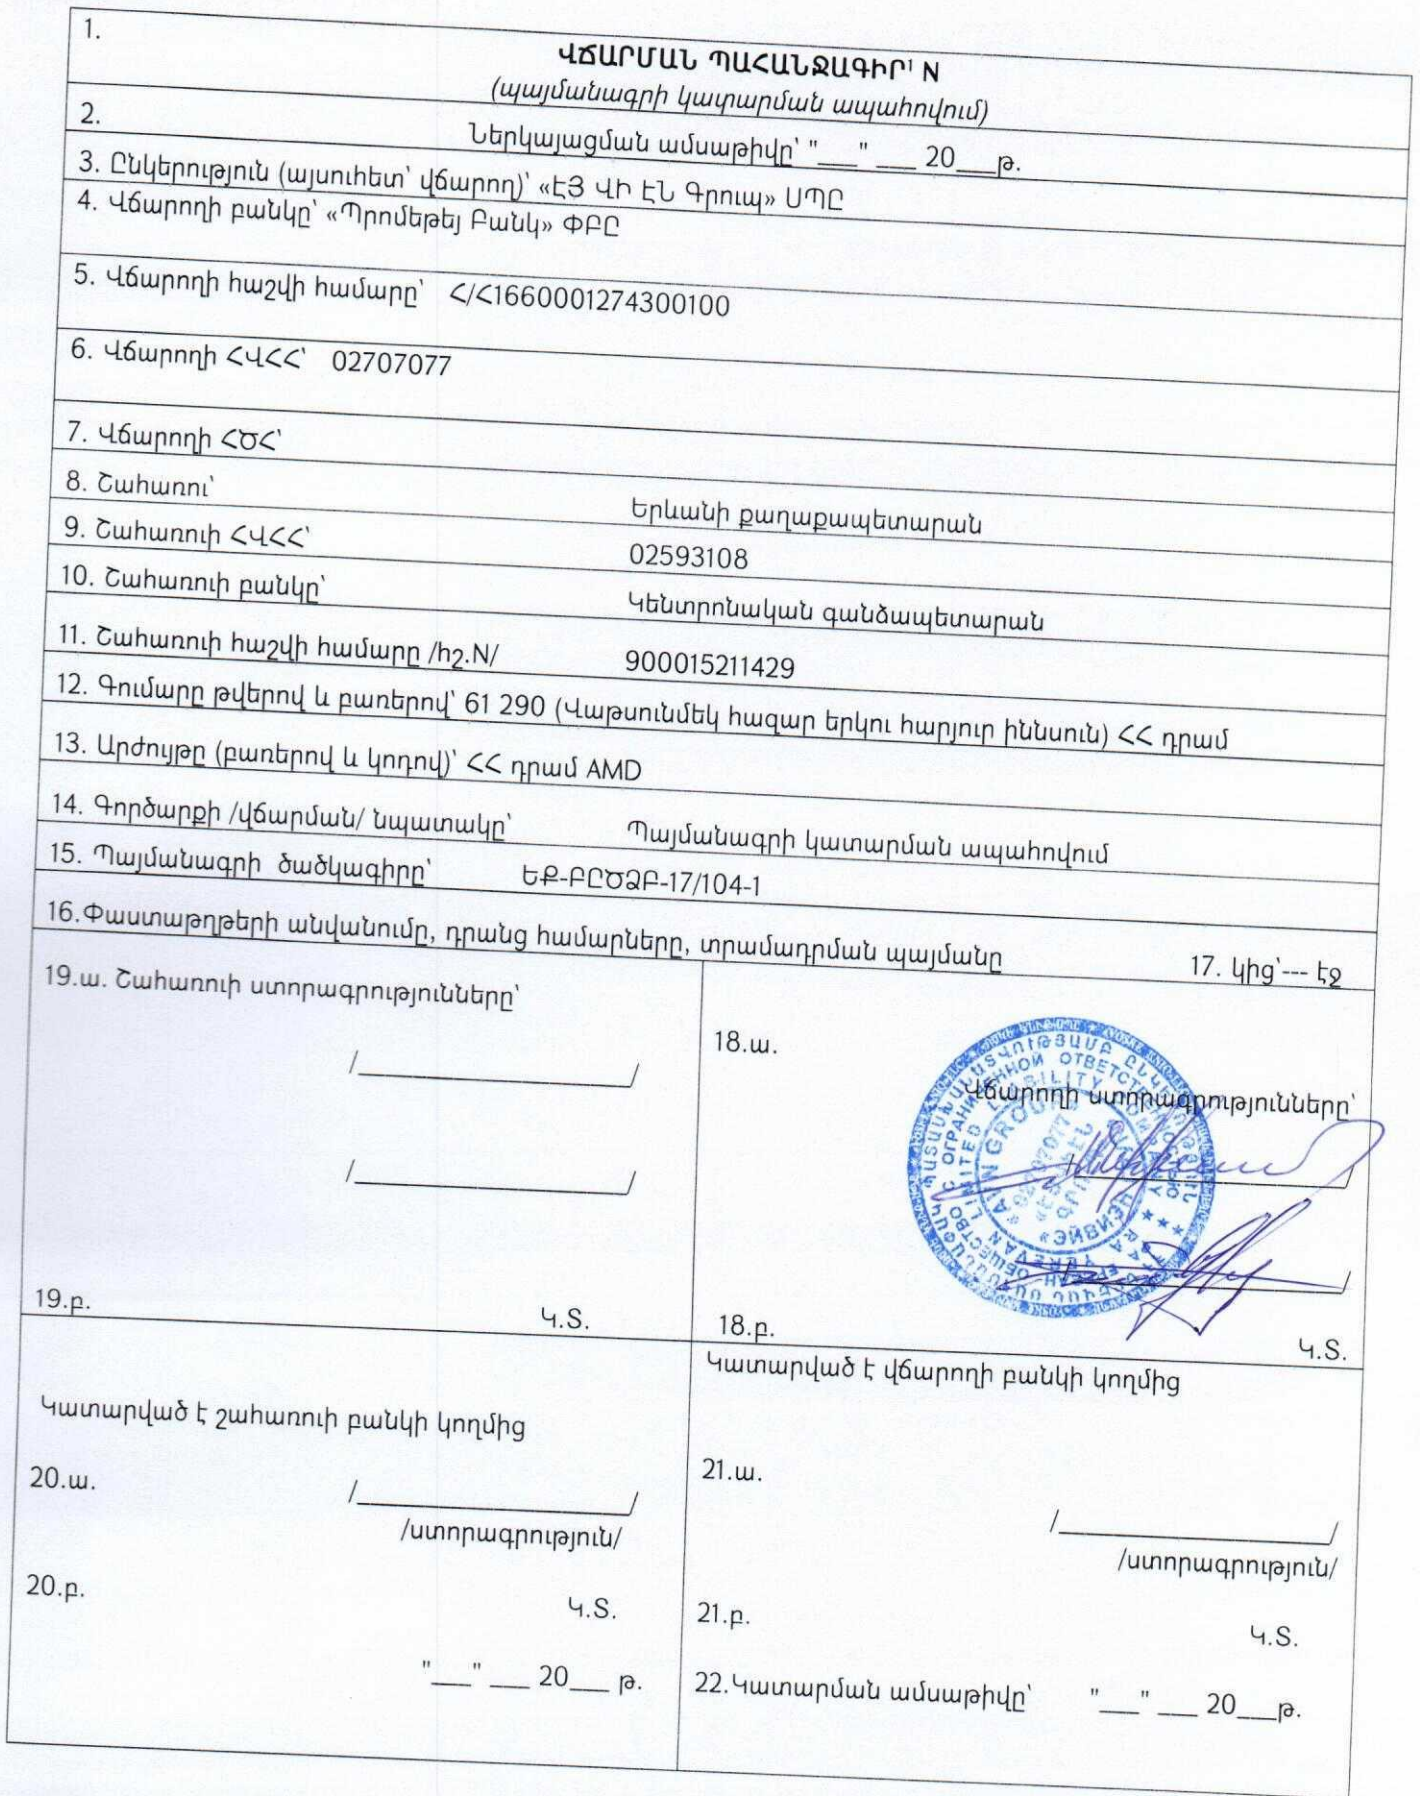 1.
ՎՃԱՐՄԱՆ ՊԱՀԱՆՋԱԳԻՐ¹ N
(պայմանագրի կատարման ապահովում)
2.
Ներկայացման ամսաթիվը՝ "___" ___ 20___թ.
3. Ընկերություն (այսուհետ՝ վճարող)՝ «ԷՅ ՎԻ ԷՆ Գրուպ» ՍՊԸ
4. Վճարողի բանկը՝ «Պրոմեթեյ Բանկ» ՓԲԸ
5. Վճարողի հաշվի համարը՝ Հ/Հ1660001274300100
6. Վճարողի ՀՎՀՀ՝ 02707077
7. Վճարողի ՀԾՀ՝
8. Շահառու՝ Երևանի քաղաքապետարան
9. Շահառուի ՀՎՀՀ՝ 02593108
10. Շահառուի բանկը՝ Կենտրոնական գանձապետարան
11. Շահառուի հաշվի համարը /հշ.N/ 900015211429
12. Գումարը թվերով և բառերով՝ 61 290 (Վաթսունմեկ հազար երկու հարյուր իննսուն) ՀՀ դրամ
13. Արժույթը (բառերով և կոդով)՝ ՀՀ դրամ AMD
14. Գործարքի /վճարման/ նպատակը՝ Պայմանագրի կատարման ապահովում
15. Պայմանագրի ծածկագիրը՝ ԵՔ-ԲԸԾՁԲ-17/104-1
16.Փաստաթղթերի անվանումը, դրանց համարները, տրամադրման պայմանը 17. կից՝--- էջ
19.ա. Շահառուի ստորագրությունները՝
/____________________/
/____________________/
19.բ. Կ.Տ.
18.ա.
Վճարողի ստորագրությունները՝
/____________________/
/____________________/
18.բ. Կ.Տ.
Կատարված է շահառուի բանկի կողմից
20.ա. /____________________/
/ստորագրություն/
20.բ. Կ.Տ.
"___" ___ 20___ թ.
Կատարված է վճարողի բանկի կողմից
21.ա.
/____________________/
/ստորագրություն/
21.բ. Կ.Տ.
22.Կատարման ամսաթիվը՝ "___" ___ 20___թ.